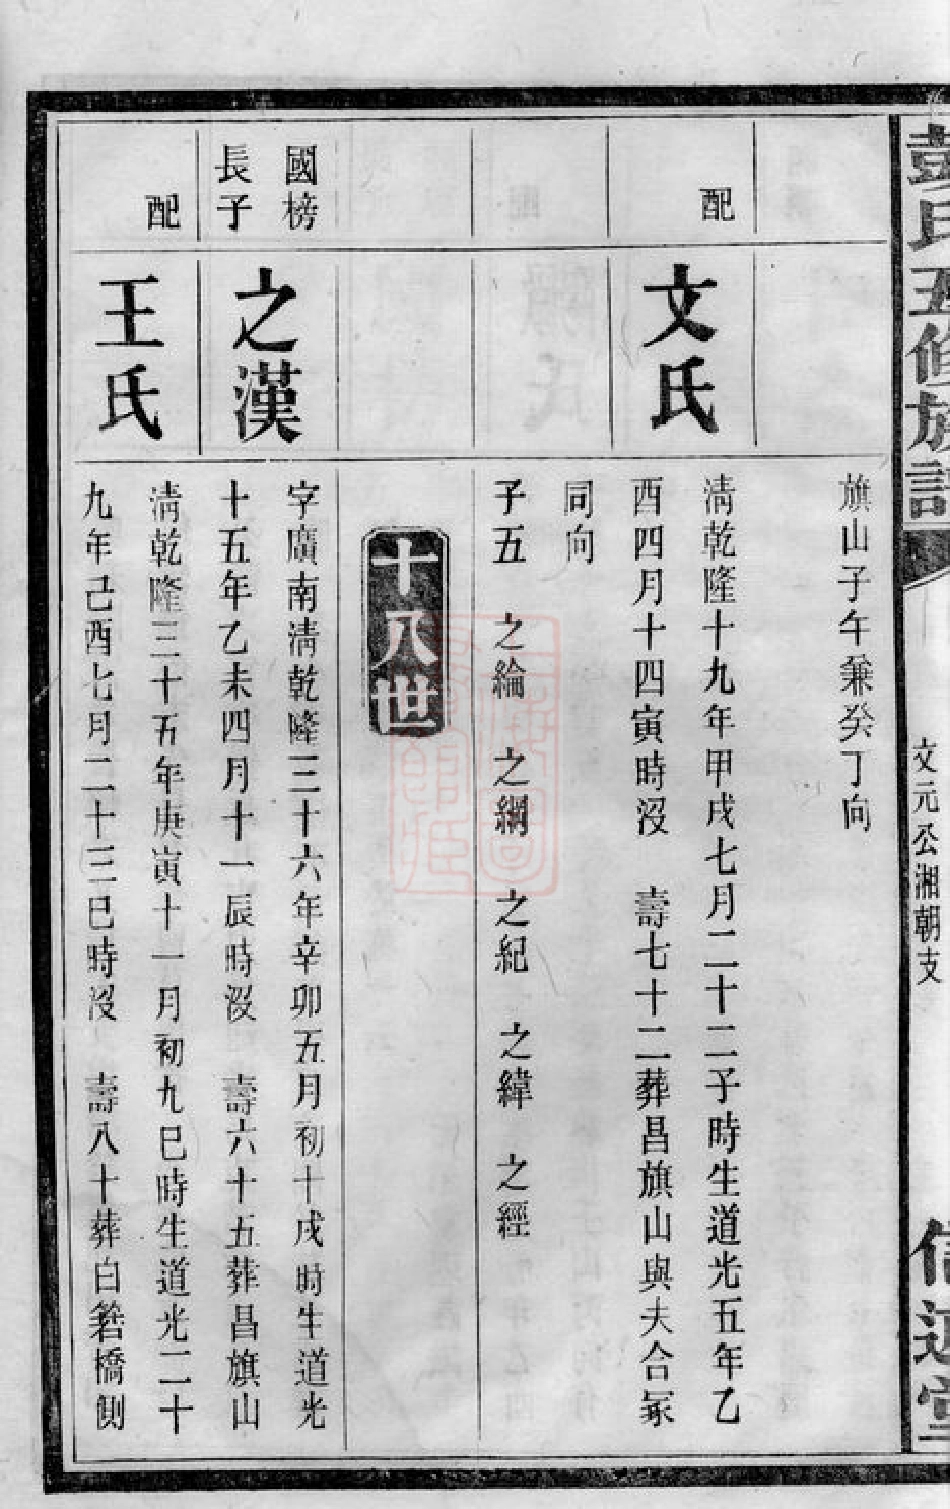 彭氏五修族譜
文元公湘朝支
信述堂
旗山子午兼癸丁向
配
文氏
清乾隆十九年甲戌七月二十二子時生道光五年乙
酉四月十四寅時沒　壽七十二葬昌旗山與夫合冢
同向
子五　之綸　之綱　之紀　之緯　之經
十八世
國榜
長子
之漢
字廣南清乾隆三十六年辛卯五月初十戌時生道光
十五年乙未四月十一辰時沒　壽六十五葬昌旗山
配
王氏
清乾隆三十五年庚寅十一月初九巳時生道光二十
九年己酉七月二十三巳時沒　壽八十葬白箬橋側